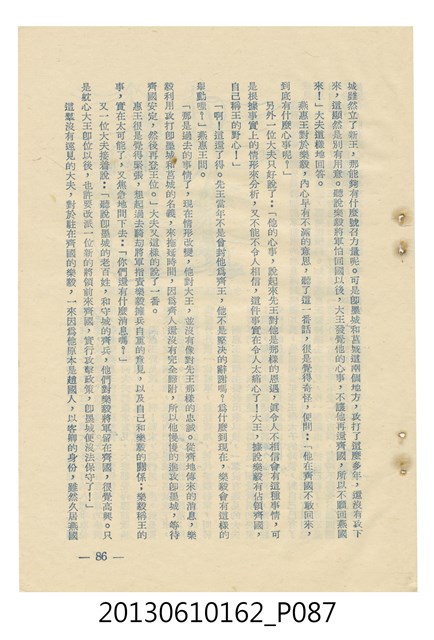 城雖然立了新王，那能夠有什麼號召力量呢。可是即墨城和莒城這兩個地方，攻打了這麼多年，還沒有攻下
來，這顯然是別有用意。聽說樂毅將軍怕回國以後，大王發覺他的心事，不讓他再還齊國，所以不願回燕國
來！」大夫這樣地回答。
燕惠王對於樂毅，內心早有不滿的意思，聽了這一番話，很是覺得奇怪，便問：「他在齊國不敢回來，
到底有什麼心事呢？」
另外一位大夫只好說了：「他的心事，說起來先王對他是那樣的恩遇，眞令人不相信會有這種事情，可
是根據事實上的情形來分析，又不能不令人相信，這件事實在令人太痛心了！大王，據說樂毅有佔領齊國，
自己稱王的野心！」
「啊！這還了得。先王當年不是曾封他為齊王，他不是堅决的辭謝嗎？為什麼到現在，樂毅會有這樣的
舉動哩？」燕惠王問。
「那是過去的事情了，現在情形改變，他對大王，並沒有像對先王那樣的忠誠。從齊地傳來的消息，樂
毅利用攻打即墨城和莒城的名義，來拖延時間，因為齊人還沒有完全歸附，所以他慢慢的進攻即墨城，等待
齊國安定，然後再登王位。」大夫又這樣的說了一番。
惠王很是覺得緊張，想起過去騎劫將軍指責樂毅擁兵自重的意見，以及自己和樂毅的關係；樂毅稱王的
事，實在太可能了，又焦急地問下去：「你們還有什麼消息嗎？」
又一位大夫接着說：「聽說即墨城的老百姓，和守城的齊兵，他們對樂毅將軍留在齊國，很覺高興。只
是躭心大王即位以後，也許要改派一位新的將領前來齊國，實行攻擊政策，即墨城便沒法保守了！」
這羣沒有遠見的大夫，對於駐在齊國的樂毅，一來因為他原本是趙國人，以客卿的身份，雖然久居燕國
— 86 —
20130610162_P087